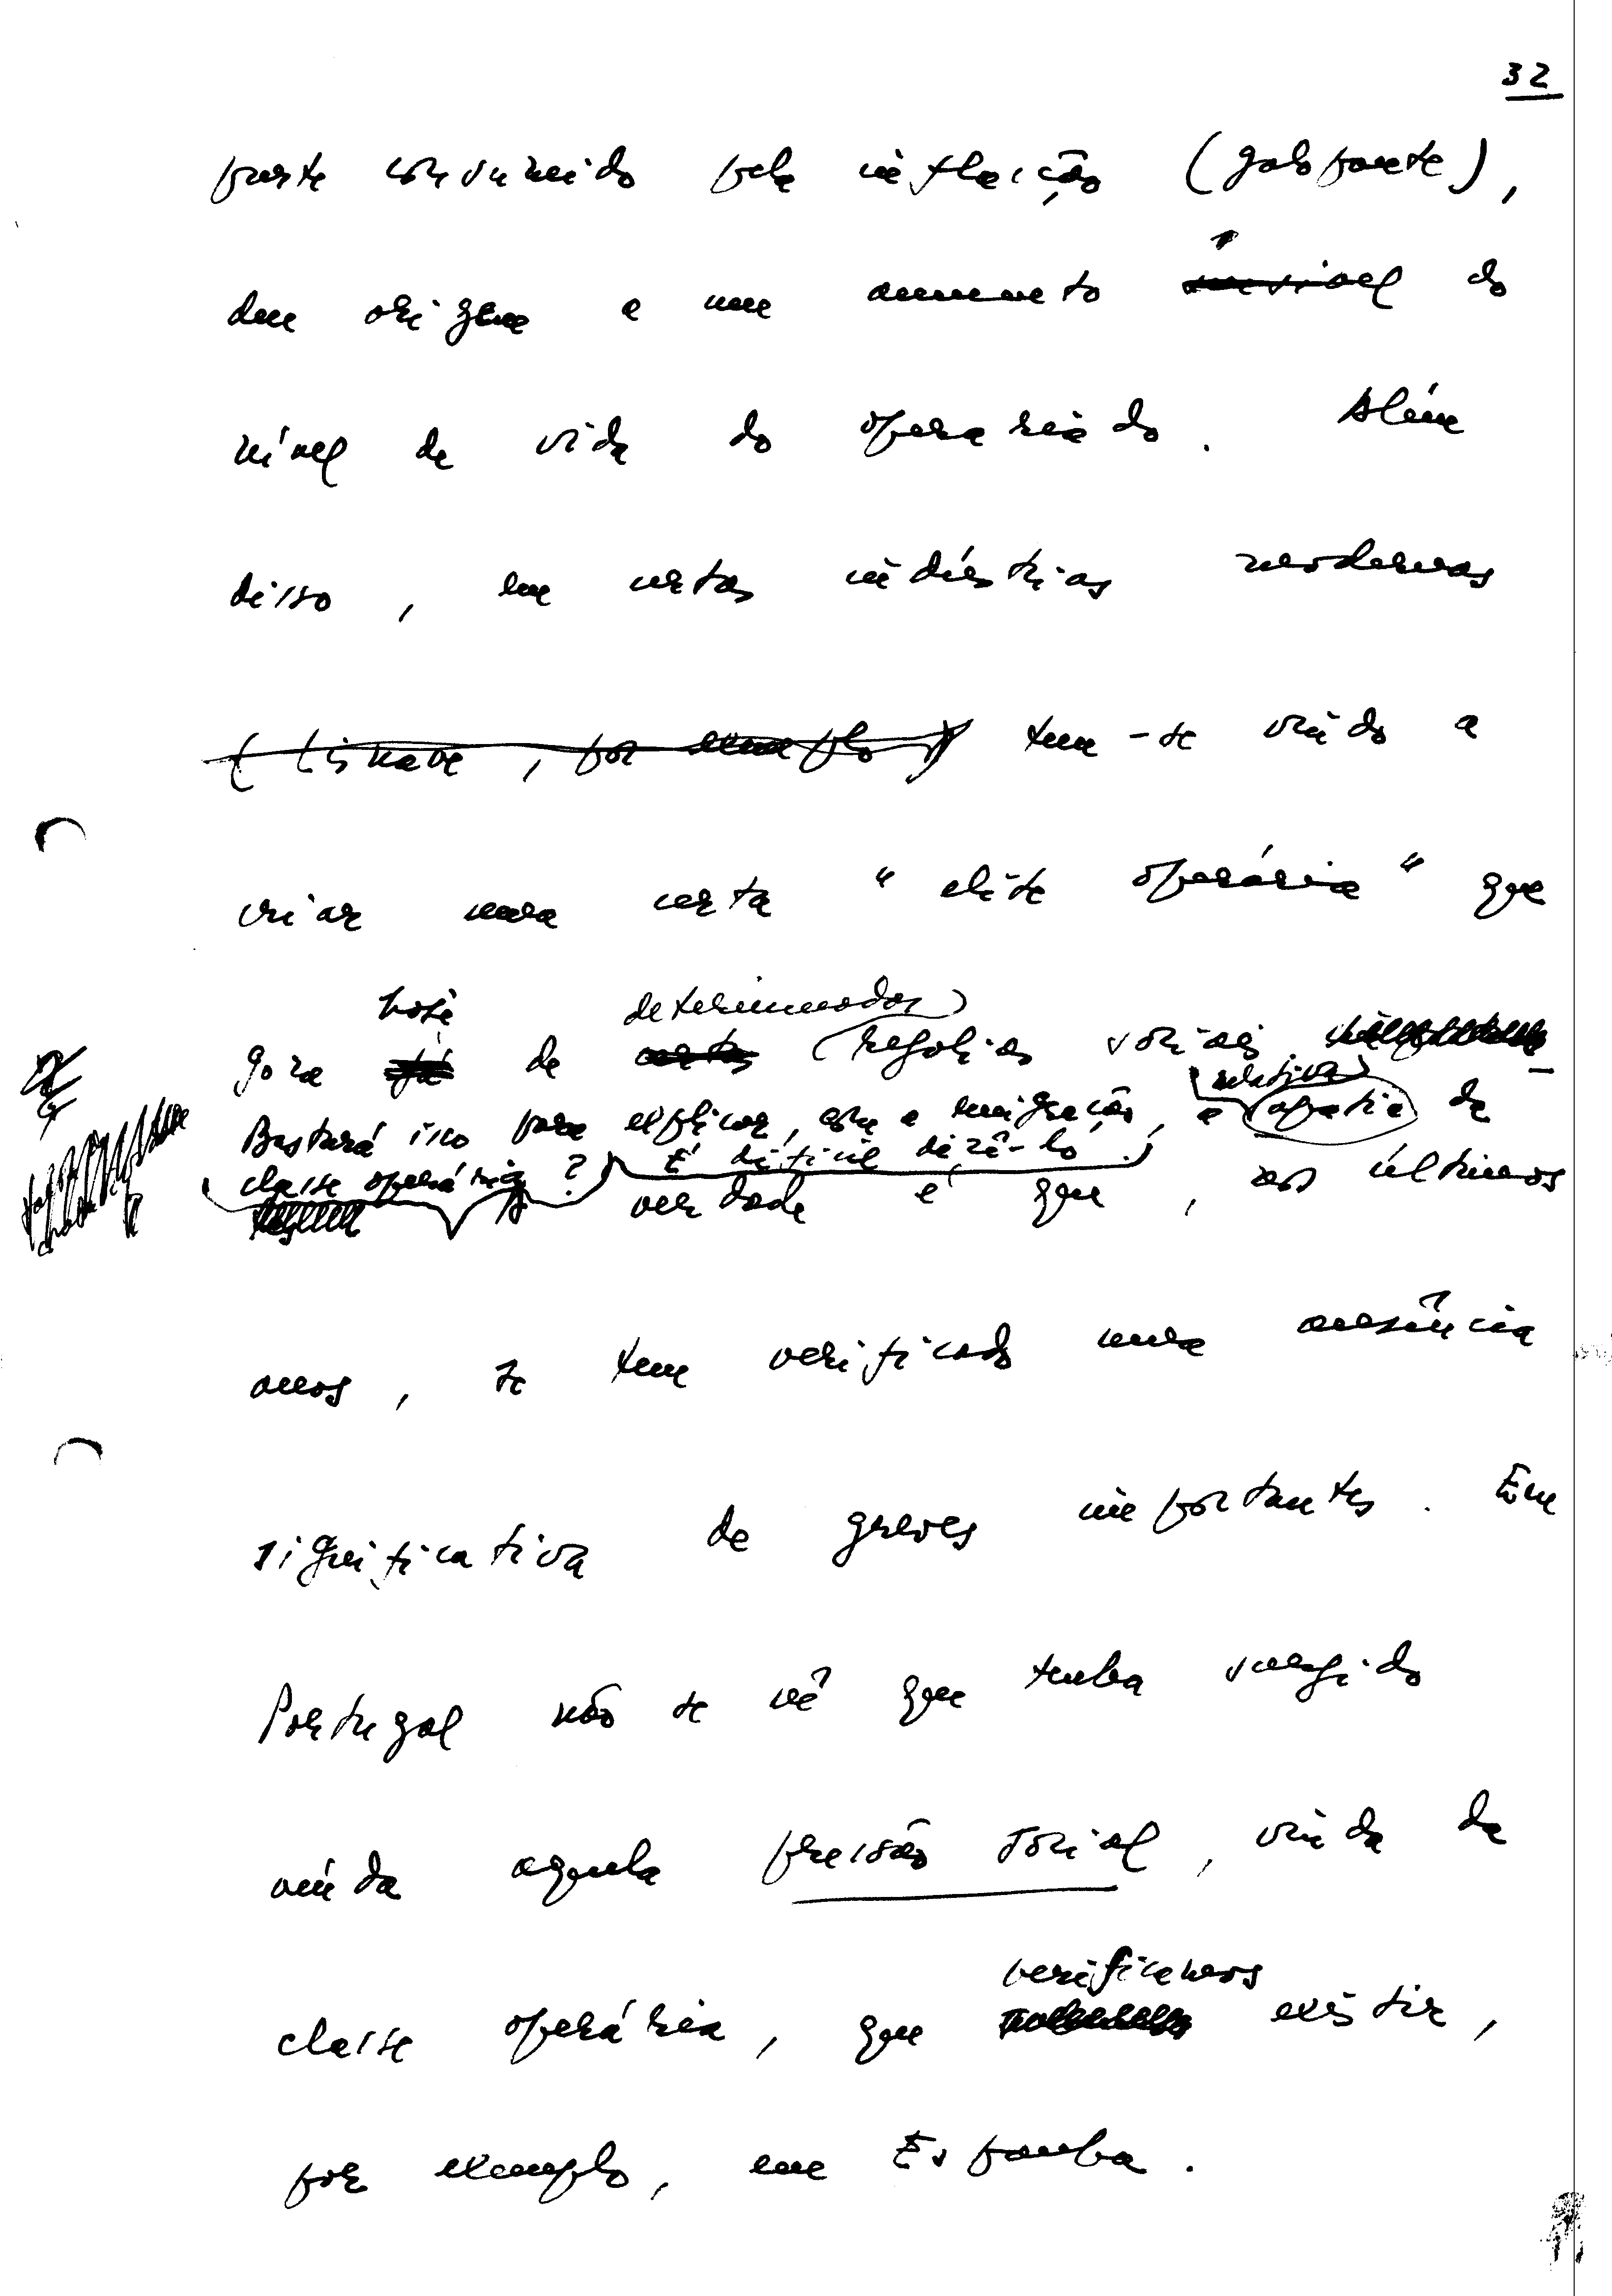 32
parte consumido pela inflação (galopante),
deu origem a um aumento do
nível de vida do operariado. Além
disso, em certas indústrias modernas
(Lisnave, por exemplo) tem-se vindo a
criar uma certa "elite operária" que
hoje determinadas
goza já de certas regalias sociais
relativa
Bastará isso para explicar, com a emigração, a apatia da
classe operária? É difícil dizê-lo.
A verdade é que, nos últimos
anos, se tem verificado uma ausência
significativa de greves importantes. Em
Portugal não se vê que tenha surgido
ainda aquela pressão social, vinda da
verificamos
classe operária, que existir,
por exemplo, em Espanha.